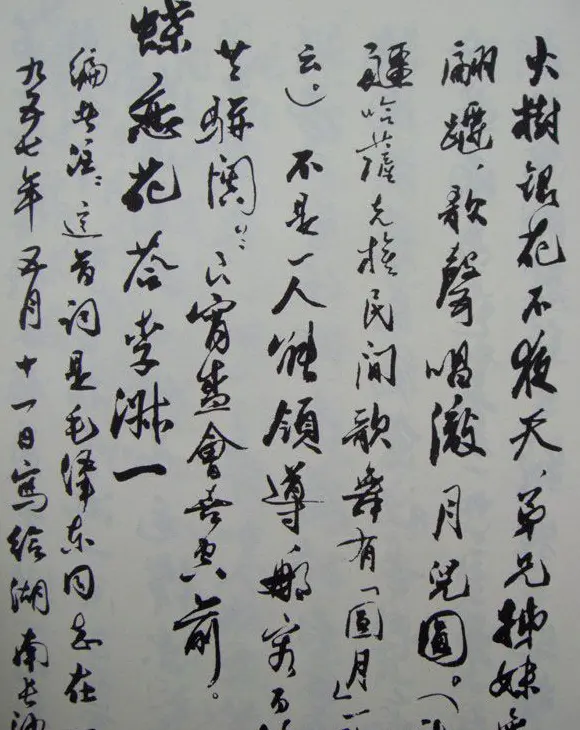 火樹銀花不夜天，弟兄姊妹舞
翩躚，歌聲唱澈月兒圓。（
疆哈薩克族民間歌舞有「圓月」一
云。）不是一人能領導，那容百
共駢闐：良宵盛會喜空前。
蝶恋花 答李淑一
編者注：這首詞是毛澤东同志在
九五七年五月十一日寫给湖南長沙